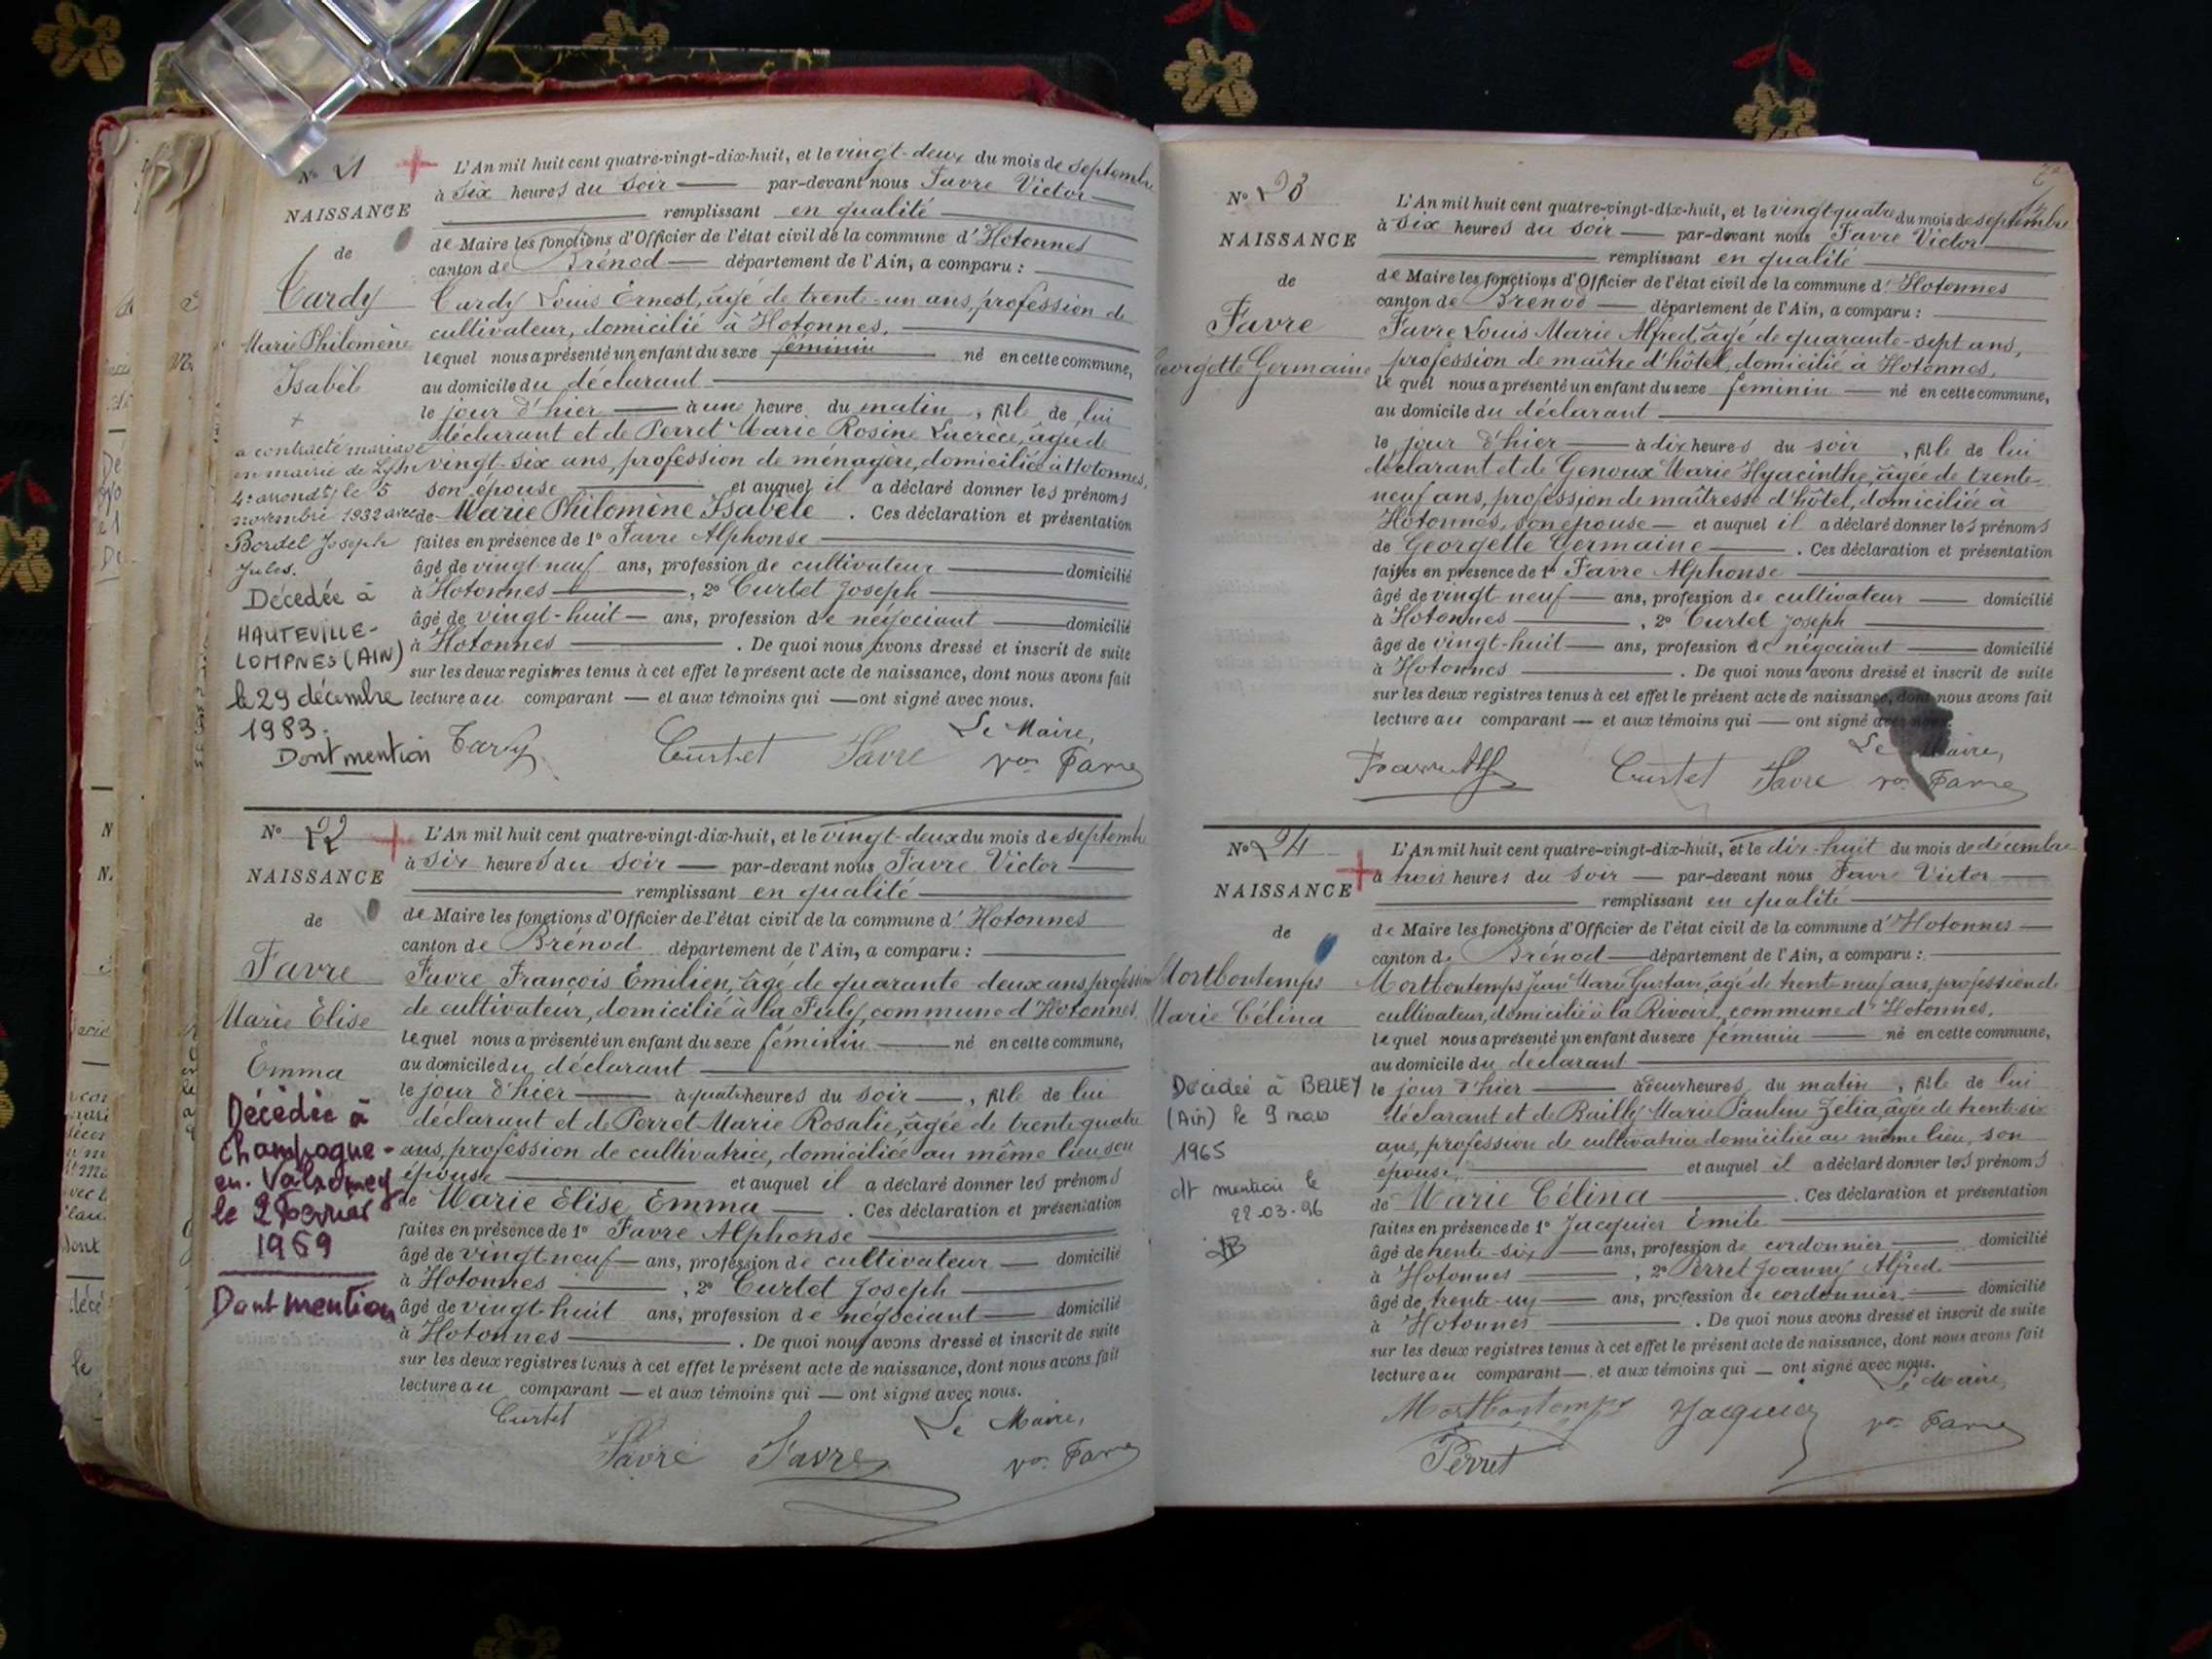 N° 21
NAISSANCE
de
Tardy
Marie Philomène
Isabèle
+
a contracté mariage
en mairie de Lyon
4e arrondt, le 5
novembre 1932 avec
Bordel Joseph
Jules.
Décédée à
HAUTEVILLE-
LOMPNES (AIN)
le 29 décembre
1983.
Dont mention
L'An mil huit cent quatre-vingt-dix-huit, et le vingt-deux du mois de septembre
à six heures du soir — par-devant nous Favre Victor
remplissant en qualité
de Maire les fonctions d'Officier de l'état civil de la commune d'Hotonnes
canton de Brénod — département de l'Ain, a comparu :
Tardy Louis Ernest, âgé de trente-un ans, profession de
cultivateur, domicilié à Hotonnes.
lequel nous a présenté un enfant du sexe féminin né en cette commune,
au domicile du déclarant
le jour d'hier — à une heure du matin, fille de lui
déclarant et de Perret Marie Rosine Lucrèce, âgée de
vingt-six ans, profession de ménagère, domiciliée à Hotonnes,
son épouse et auquel il a déclaré donner les prénoms
de Marie Philomène Isabèle. Ces déclaration et présentation
faites en présence de 1° Favre Alphonse
âgé de vingt neuf ans, profession de cultivateur domicilié
à Hotonnes, 2° Curtet Joseph
âgé de vingt-huit — ans, profession de négociant domicilié
à Hotonnes. De quoi nous avons dressé et inscrit de suite
sur les deux registres tenus à cet effet le présent acte de naissance, dont nous avons fait
lecture au comparant — et aux témoins qui — ont signé avec nous.
Le Maire,
Tardy Curtet Favre Vor Favre
N° 22
NAISSANCE
de
Favre
Marie Elise
Emma
Décédée à
Champagne-
en-Valromey
le 2 Février
1959
Dont mention
L'An mil huit cent quatre-vingt-dix-huit, et le vingt-deux du mois de septembre
à six heures du soir — par-devant nous Favre Victor
remplissant en qualité
de Maire les fonctions d'Officier de l'état civil de la commune d'Hotonnes
canton de Brénod département de l'Ain, a comparu :
Favre François Emilien, âgé de quarante-deux ans, profession
de cultivateur, domicilié à la commune d'Hotonnes
lequel nous a présenté un enfant du sexe féminin né en cette commune,
au domicile du déclarant
le jour d'hier — à quatre heures du soir —, fille de lui
déclarant et de Perret Marie Rosalie, âgée de trente quatre
ans, profession de cultivatrice, domiciliée au même lieu son
épouse et auquel il a déclaré donner les prénoms
de Marie Elise Emma. Ces déclaration et présentation
faites en présence de 1° Favre Alphonse
âgé de vingt neuf — ans, profession de cultivateur — domicilié
à Hotonnes, 2° Curtet Joseph
âgé de vingt-huit ans, profession de négociant domicilié
à Hotonnes. De quoi nous avons dressé et inscrit de suite
sur les deux registres tenus à cet effet le présent acte de naissance, dont nous avons fait
lecture au comparant — et aux témoins qui — ont signé avec nous.
Curtet Le Maire,
Favre Favre Vor Favre
N° 23
NAISSANCE
de
Favre
Georgette Germaine
L'An mil huit cent quatre-vingt-dix-huit, et le vingt-quatre du mois de septembre
à six heures du soir — par-devant nous Favre Victor
remplissant en qualité
de Maire les fonctions d'Officier de l'état civil de la commune d'Hotonnes
canton de Brénod — département de l'Ain, a comparu :
Favre Louis Marie Alfred, âgé de quarante-sept ans,
profession de maître d'hôtel, domicilié à Hotonnes.
lequel nous a présenté un enfant du sexe féminin — né en cette commune,
au domicile du déclarant
le jour d'hier — à dix heures du soir, fille de lui
déclarant et de Genoux Marie Hyacinthe, âgée de trente-
neuf ans, profession de maîtresse d'hôtel, domiciliée à
Hotonnes, son épouse — et auquel il a déclaré donner les prénoms
de Georgette Germaine. Ces déclaration et présentation
faites en présence de 1° Favre Alphonse
âgé de vingt neuf — ans, profession de cultivateur — domicilié
à Hotonnes, 2° Curtet Joseph
âgé de vingt-huit — ans, profession de négociant domicilié
à Hotonnes. De quoi nous avons dressé et inscrit de suite
sur les deux registres tenus à cet effet le présent acte de naissance, dont nous avons fait
lecture au comparant — et aux témoins qui — ont signé avec nous.
Le Maire,
Favre Alf Curtet Favre Vor Favre
N° 24
NAISSANCE
de
Mortbontemps
Marie Célina
Décédée à BELLEY
(Ain) le 9 mars
1965
dt mention le
22-03-96
L'An mil huit cent quatre-vingt-dix-huit, et le dix-huit du mois de décembre
à trois heures du soir — par-devant nous Favre Victor
remplissant en qualité
de Maire les fonctions d'Officier de l'état civil de la commune d'Hotonnes
canton de Brénod — département de l'Ain, a comparu :
Mortbontemps Jean Marie Gustave, âgé de trente-neuf ans, profession de
cultivateur, domicilié à la Rivoire, commune d'Hotonnes.
lequel nous a présenté un enfant du sexe féminin né en cette commune,
au domicile du déclarant
le jour d'hier à deux heures du matin, fille de lui
déclarant et de Bailly Marie Pauline Zélia, âgée de trente-six
ans, profession de cultivatrice domiciliée au même lieu, son
épouse, et auquel il a déclaré donner les prénoms
de Marie Célina. Ces déclaration et présentation
faites en présence de 1° Jacquier Emile
âgé de trente-six — ans, profession de cordonnier domicilié
à Hotonnes, 2° Perret Joanny Alfred
âgé de trente-un — ans, profession de cordonnier domicilié
à Hotonnes. De quoi nous avons dressé et inscrit de suite
sur les deux registres tenus à cet effet le présent acte de naissance, dont nous avons fait
lecture au comparant — et aux témoins qui — ont signé avec nous.
Le Maire,
Mortbontemps Jacquier Vor Favre
Perret